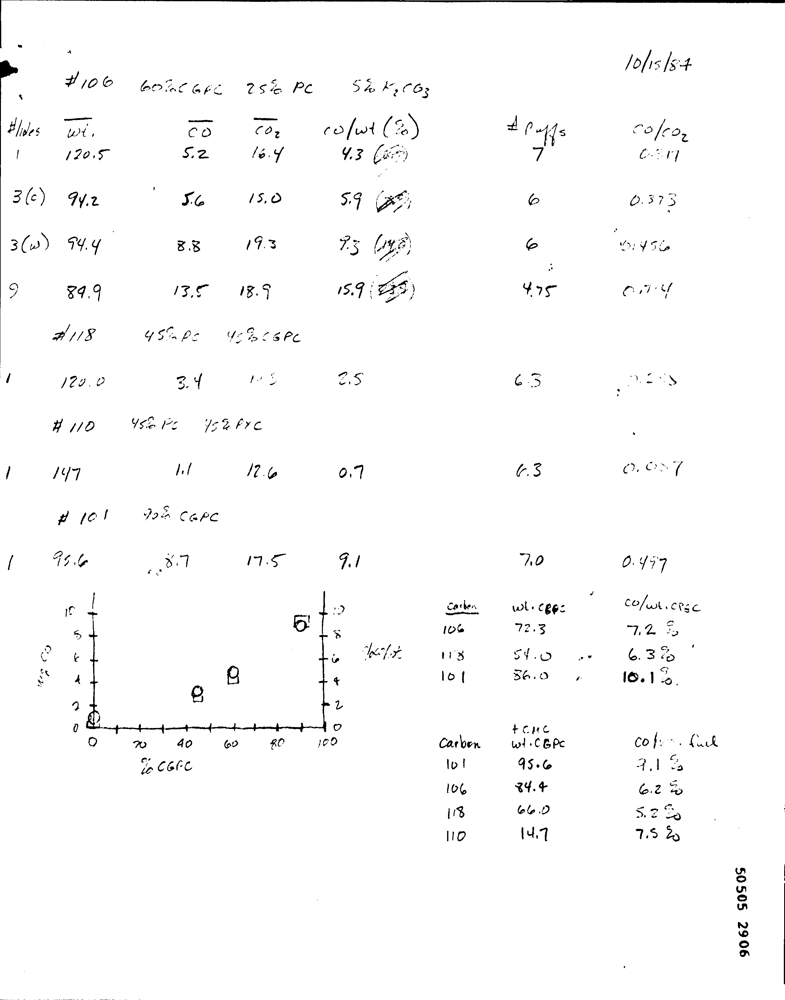 10/15/84
#106 60% CGPC 25% PC 5% K2CO3
#holes wt. CO CO2 CO/wt (%) # Puffs CO/CO2
1 120.5 5.2 16.4 4.3 7
3(c) 94.2 5.6 15.0 5.9 6 0.373
3(w) 94.4 8.8 19.3 9.3 6 0.456
9 84.9 13.5 18.9 15.9 4.75 0.714
#118 45% PC 45% CGPC
1 120.0 3.4 2.5 6.3
#110 45% PC 45% PYC
1 147 1.1 12.6 0.7 6.3 0.087
#101 90% CGPC
1 95.6 8.7 17.5 9.1 7.0 0.497
10 10
8 8
6 6
4 4
2 2
0 0
0 20 40 60 80 100
% CGPC
mg CO
Carbon wt. CGPC CO/wt. CGPC
106 72.3 7.2%
118 54.0 6.3%
101 86.0 10.1%
+ CMC
Carbon wt. CGPC CO/ fuel
101 95.6 9.1%
106 84.4 6.2%
118 66.0 5.2%
110 14.7 7.5%
50505 2906